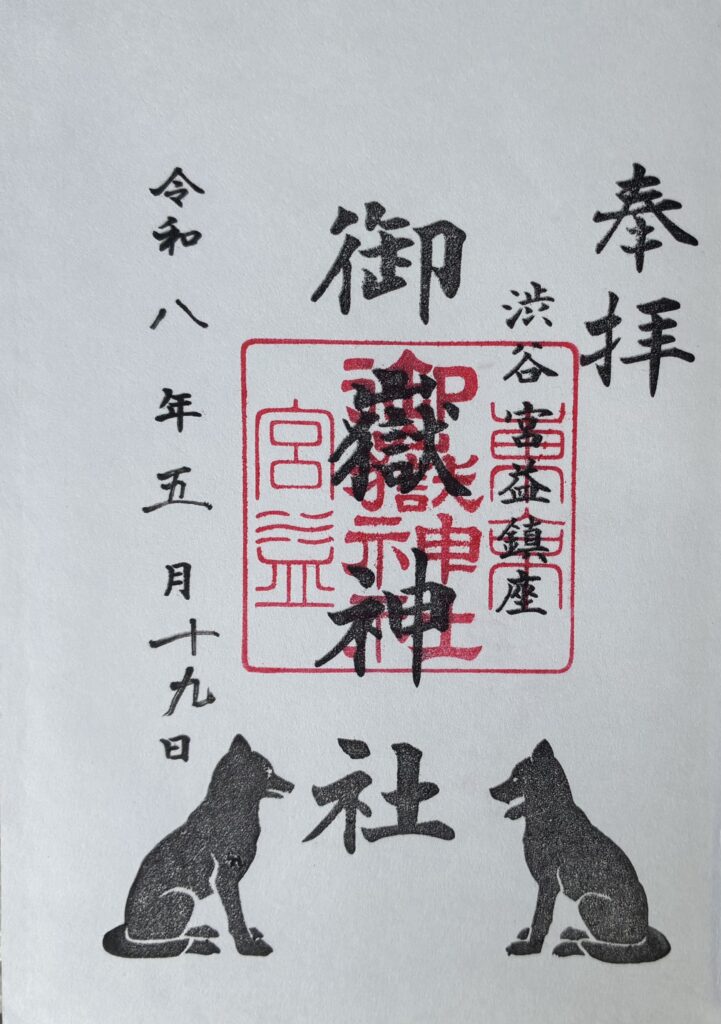 奉拝
渋谷宮益鎮座
御嶽神社
令和八年五月十九日
宮益
御嶽神社